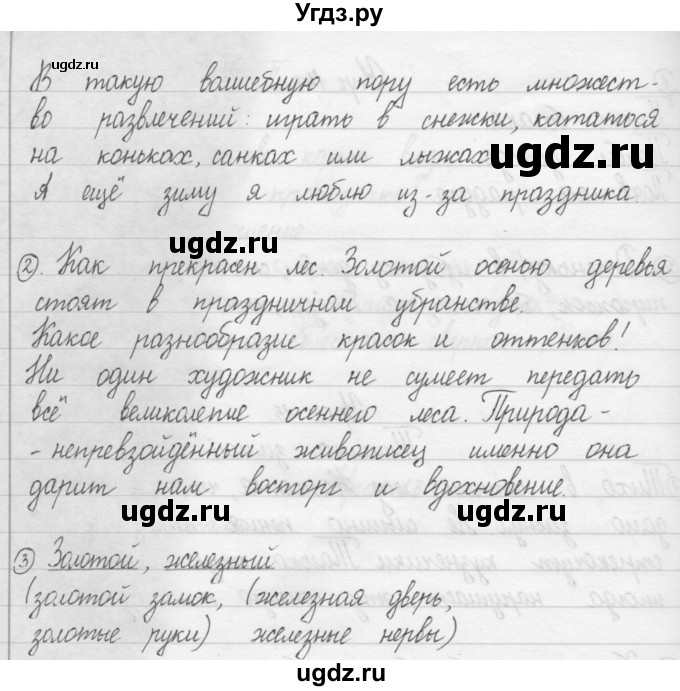 Угдз.ру
ugdz.ru
В такую волшебную пору есть множест-
во развлечений: играть в снежки, кататься
на коньках, санках или лыжах
ugdz.ru
А ещё зиму я люблю из-за праздника
ugdz.ru
②. Как прекрасен лес. Золотой осенью деревья
стоят в праздничном убранстве.
Какое разнообразие красок и оттенков!
Ни один художник не сумеет передать
всё великолепие осеннего леса. Природа-
-непревзойдённый живописец именно она
дарит нам восторг и вдохновение.
ugdz.ru ugdz.ru
③ Золотой, железный
(золотой замок, (железная дверь,
ugdz.ru
золотые руки) железные нервы)
ugdz.ru